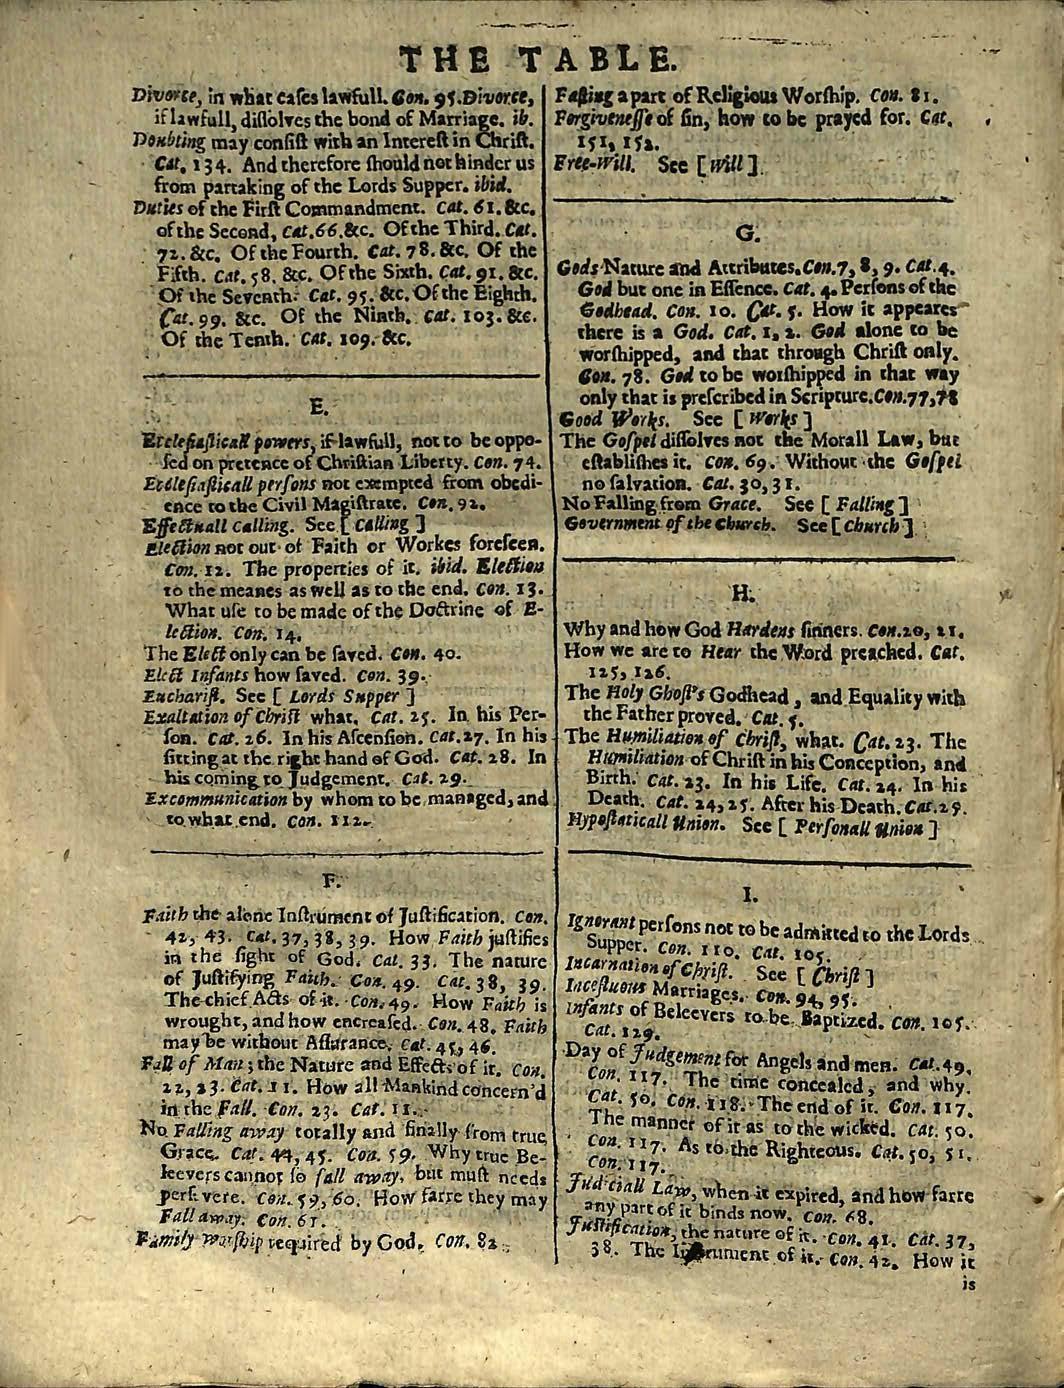 THE TABLE.
Divorce, in what caſes lawfull. Con. 95. Divorce,
if lawfull, diſſolves the bond of Marriage. ib.
Doubting may conſiſt with an Intereſt in Chriſt.
Cat. 134. And therefore ſhould not hinder us
from partaking of the Lords Supper. ibid.
Duties of the Firſt Commandment. Cat. 61. &c.
of the Second, Cat. 66. &c. Of the Third. Cat.
72. &c. Of the Fourth. Cat. 78. &c. Of the
Fifth. Cat. 58. &c. Of the Sixth. Cat. 91. &c.
Of the Seventh. Cat. 95. &c. Of the Eighth.
Cat. 99. &c. Of the Ninth. Cat. 103. &c.
Of the Tenth. Cat. 109. &c.
E.
Eccleſiaſticall powers, if lawfull, not to be oppo-
ſed on pretence of Chriſtian Liberty. Con. 74.
Eccleſiaſticall perſons not exempted from obedi-
ence to the Civil Magiſtrate. Con. 92.
Effectuall Calling. See [ Calling ]
Election not out of Faith or Workes foreſeen.
Con. 12. The properties of it. ibid. Election
to the meanes as well as to the end. Con. 13.
What uſe to be made of the Doctrine of E-
lection. Con. 14.
The Elect only can be ſaved. Con. 40.
Elect Infants how ſaved. Con. 39.
Euchariſt. See [ Lords Supper ]
Exaltation of Chriſt what. Cat. 25. In his Per-
ſon. Cat. 26. In his Aſcenſion. Cat. 27. In his
ſitting at the right hand of God. Cat. 28. In
his coming to Judgement. Cat. 29.
Excommunication by whom to be managed, and
to what end. Con. 112.
F.
Faith the alone Inſtrument of Juſtification. Con.
42, 43. Cat. 37, 38, 39. How Faith juſtifies
in the ſight of God. Cat. 33. The nature
of Juſtifying Faith. Con. 49. Cat. 38, 39.
The chief Acts of it. Con. 49. How Faith is
wrought, and how encreaſed. Con. 48. Faith
may be without Aſſurance. Cat. 45, 46.
Fall of Man; the Nature and Effects of it. Con.
22, 23. Cat. 11. How all Mankind concern'd
in the Fall. Con. 23. Cat. 11.
No Falling away totally and finally from true
Grace. Cat. 44, 45. Con. 59. Why true Be-
leevers cannot ſo fall away, but muſt needs
perſevere. Con. 59, 60. How farre they may
Fall away. Con. 61.
Family worſhip required by God. Con. 82.
Faſting a part of Religious Worſhip. Con. 81.
Forgiveneſſe of ſin, how to be prayed for. Cat.
151, 152.
Free-Will. See [ Will ]
G.
Gods Nature and Attributes. Con. 7, 8, 9. Cat. 4.
God but one in Eſſence. Cat. 4. Perſons of the
Godhead. Con. 10. Cat. 5. How it appeares
there is a God. Cat. 1, 2. God alone to be
worſhipped, and that through Chriſt only.
Con. 78. God to be worſhipped in that way
only that is preſcribed in Scripture. Con. 77, 78
Good Works. See [ Works ]
The Goſpel diſſolves not the Morall Law, but
eſtabliſhes it. Con. 69. Without the Goſpel
no ſalvation. Cat. 30, 31.
No Falling from Grace. See [ Falling ]
Government of the Church. See [ Church ]
H.
Why and how God Hardens ſinners. Con. 20, 21.
How we are to Hear the Word preached. Cat.
125, 126.
The Holy Ghoſt's Godhead, and Equality with
the Father proved. Cat. 5.
The Humiliation of Chriſt, what. Cat. 23. The
Humiliation of Chriſt in his Conception, and
Birth. Cat. 23. In his Life. Cat. 24. In his
Death. Cat. 24, 25. After his Death. Cat. 25.
Hypoſtaticall Union. See [ Perſonall Union ]
I.
Ignorant perſons not to be admitted to the Lords
Supper. Con. 110. Cat. 105.
Incarnation of Chriſt. See [ Chriſt ]
Inceſtuous Marriages. Con. 94, 95.
Infants of Beleevers to be Baptized. Con. 105.
Cat. 129.
Day of Judgement for Angels and men. Cat. 49.
Con. 117. The time concealed, and why.
Cat. 50. Con. 118. The end of it. Con. 117.
The manner of it as to the wicked. Cat. 50.
Con. 117. As to the Righteous. Cat. 50, 51.
Con. 117.
Judiciall Law, when it expired, and how farre
any part of it binds now. Con. 68.
Juſtification, the nature of it. Con. 41. Cat. 37,
38. The Inſtrument of it. Con. 42. How it
is